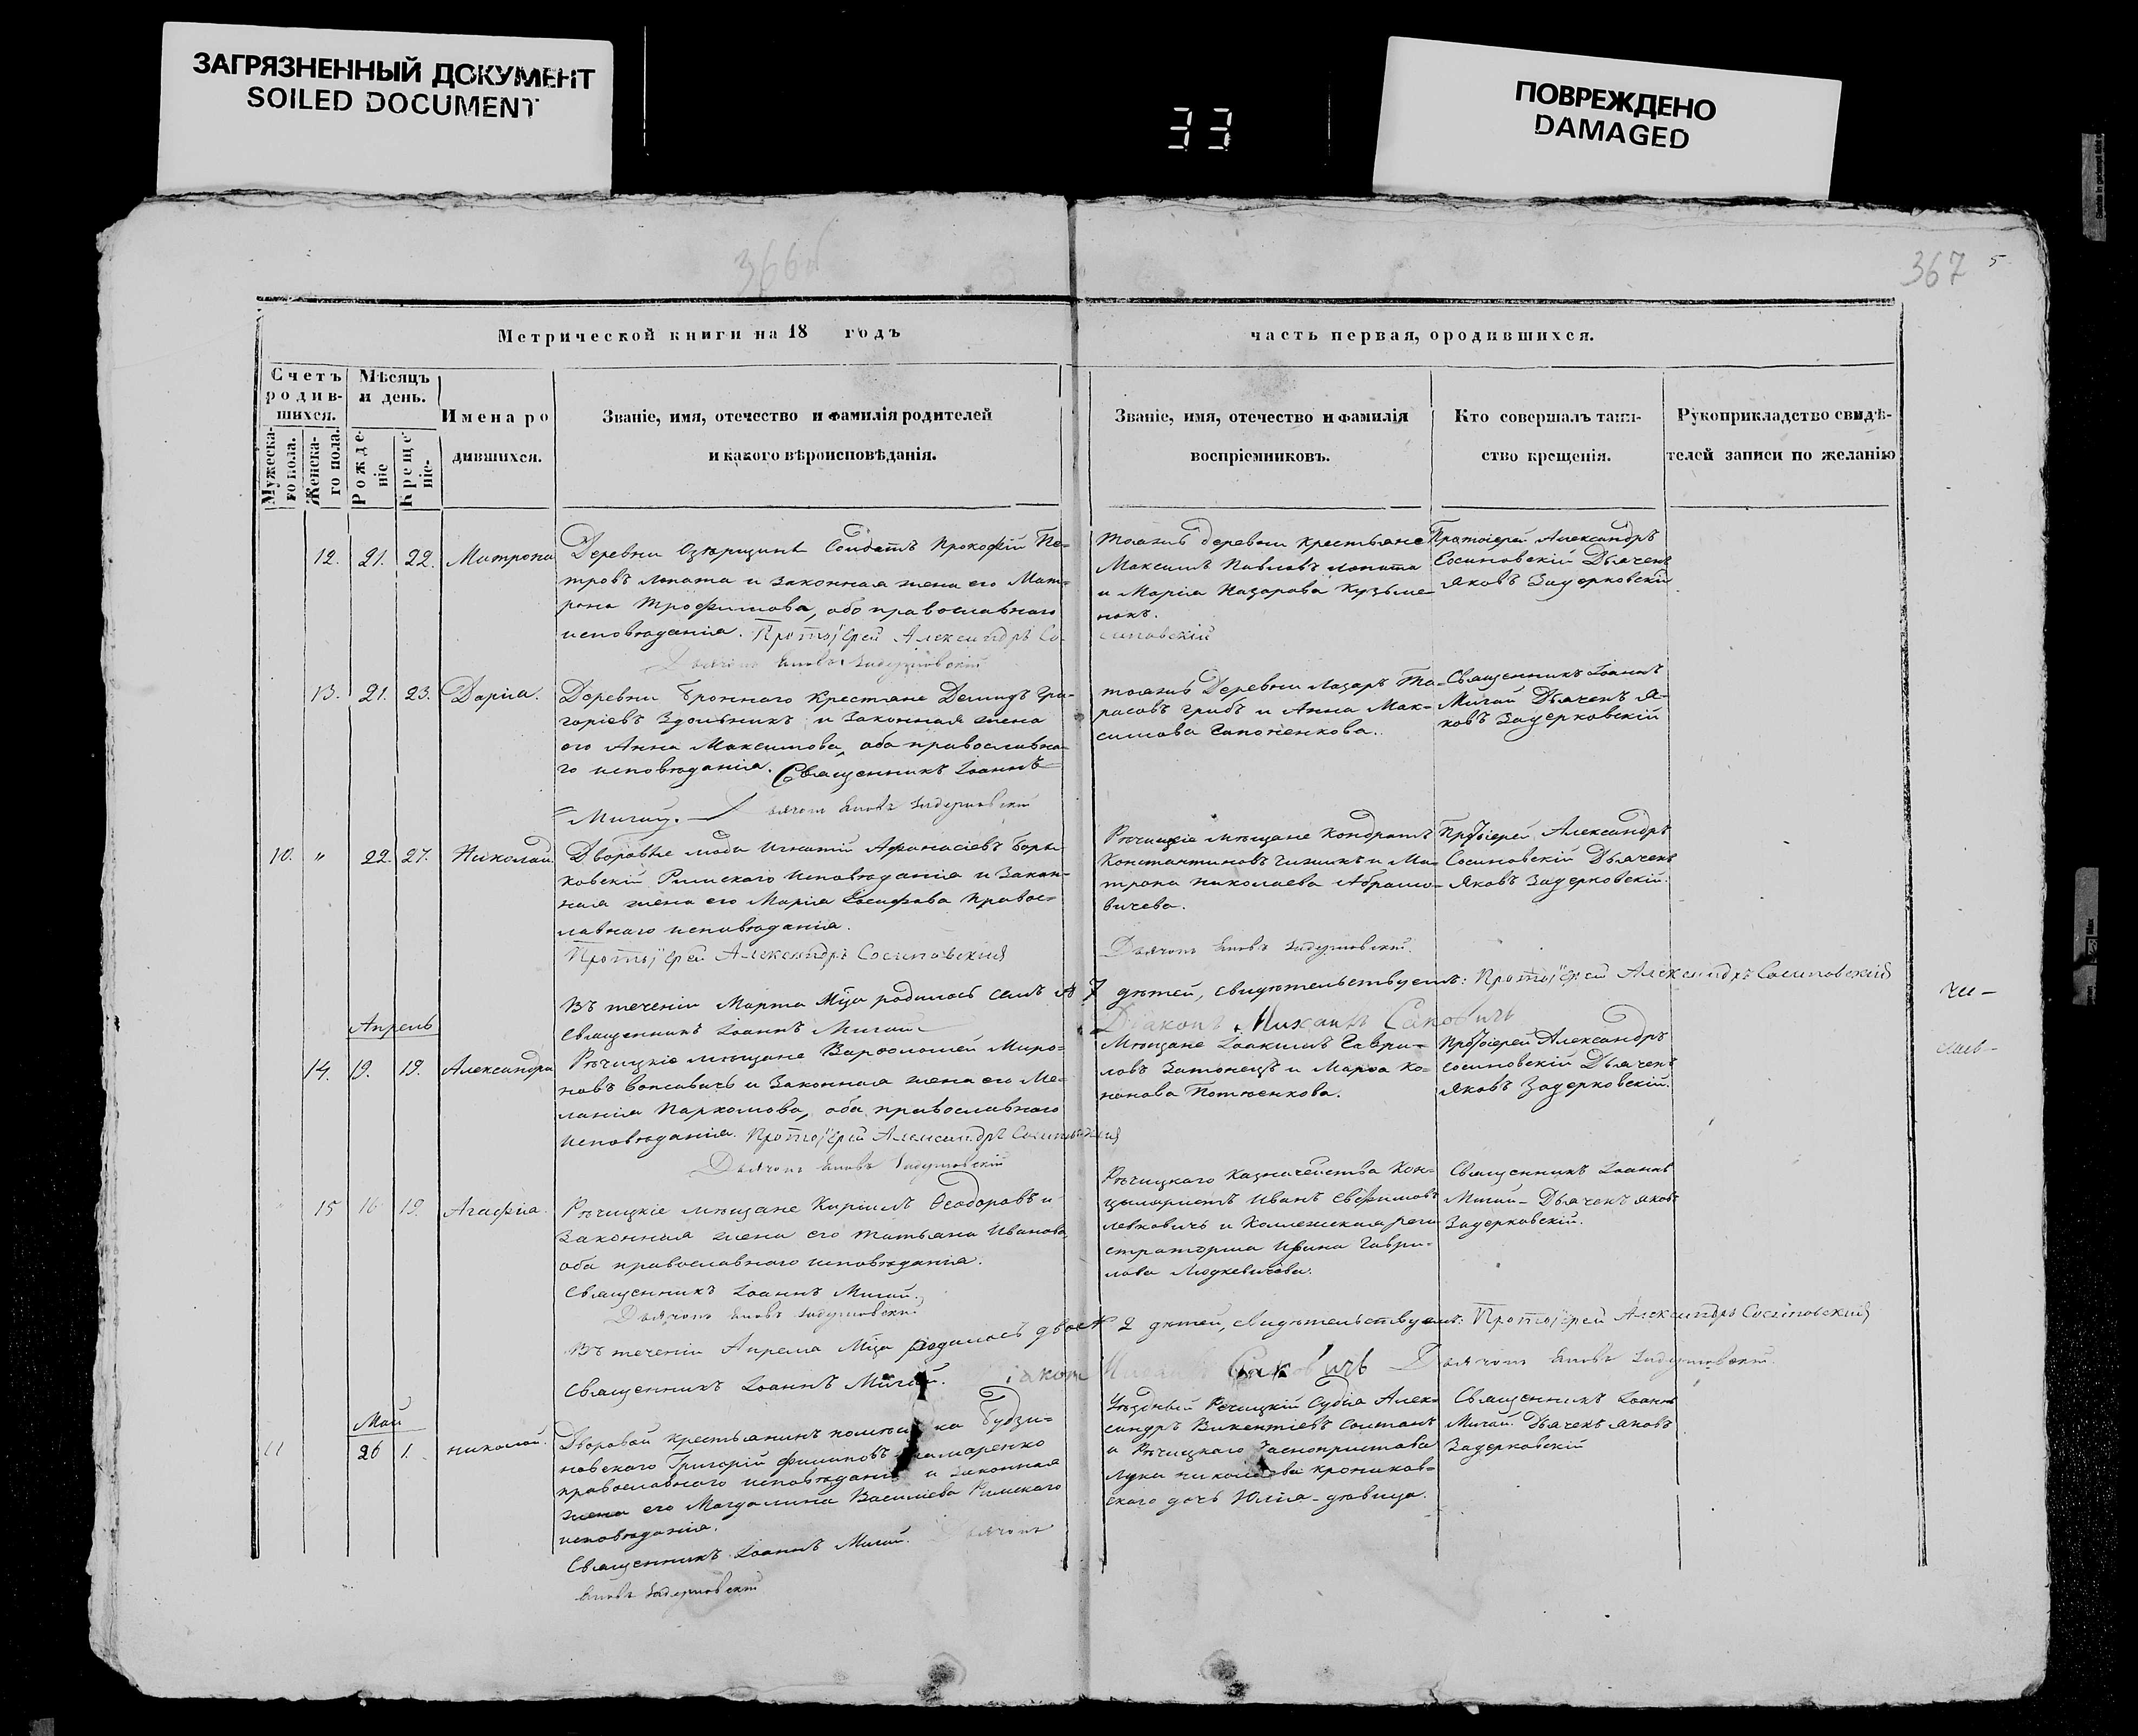 ЗАГРЯЗНЕННЫЙ ДОКУМЕНТ
SOILED DOCUMENT
33
ПОВРЕЖДЕНО
DAMAGED
366об
367 5
Метрической книги на 18 годъ
часть первая, ородившихся.
Счетъ родившихся.
Мужескаго пола.
Женскаго пола.
Мѣсяцъ и день.
Рожденіе
Крещеніе.
Имена родившихся.
Званіе, имя, отечество и фамилія родителей
и какого вѣроисповѣданія.
Званіе, имя, отечество и фамилія
воспріемниковъ.
Кто совершалъ таинство крещенія.
Рукоприкладство свидѣтелей записи по желанію
12. 21. 22. Матрона
Деревни Озерщины Солдатъ Прокофій Пе-
тровъ Лопата и законная жена его Мат-
рона Трофимова, оба православнаго
исповѣданія. Протоіерей Александръ Со-
синовскій
Дьячокъ Яковъ Задерковскій
тояжъ деревни крестьяне
Максимъ Павловъ Лопата
и Марія Назарова Кузьме-
нокъ.
Протоіерей Александръ
Сосиновскій Дьячекъ
Яковъ Задерковскій
13. 21. 23. Дарія.
Деревни Броннаго Крестяне Демидъ Гри-
горіевъ Здольникъ и Законная жена
его Анна Максимова, оба православна-
го исповѣданія. Священникъ Іоаннъ
Мигай. Дьячокъ Яковъ Задерковскій
тояжъ Деревни Лазарь Та-
расовъ Грибъ и Анна Мак-
симова Сапоненкова.
Священникъ Іоаннъ
Мигай Дьячекъ Я-
ковъ Задерковскій
10. " 22. 27. Николай.
Дворовые люди Игнатій Афанасіевъ Борт-
ковскій Римскаго Исповѣданія и Закон-
ная жена его Марія Іосифова Правос-
лавнаго исповѣданія.
Протоіерей Александръ Сосиновскій
Рѣчицкіе мѣщане Кондратъ
Константиновъ Чижикъ и Ма-
трона Николаева Абрамо-
вичева.
Дьячокъ Яковъ Задерковскій.
Протоіерей Александръ
Сосиновскій Дьячекъ
Яковъ Задерковскій.
Въ теченіи Марта Мца родилось семь 7 дѣтей, свидѣтельствуемъ: Протоіерей Александръ Сосиновскій
Священникъ Іоаннъ Мигай
Діаконъ Михаилъ Саковичъ
Апрель
14. 19. 19. Александра
Рѣчицкіе мѣщане Варфоломей Миро-
новъ и Законная жена его Ме-
ланія Пархомова, оба православнаго
Исповѣданія. Протоіерей Александръ Сосиновскій
Дьячокъ Яковъ Задерковскій
Мѣщане Іоакимъ Гаври-
ловъ Затонецъ и Марфа Ко-
нонова Потюенкова.
Протоіерей Александръ
Сосиновскій Дьячекъ
Яковъ Задерковскій.
15 16 19. Агафіа.
Рѣчицкіе мѣщане Кириллъ Ѳеодоровъ и
Законная жена его Татьяна Иванова,
оба православнаго исповѣданія.
Священникъ Іоаннъ Мигай.
Дьячокъ Яковъ Задерковскій
Рѣчицкаго Казначейства Кан-
целаристъ Иванъ Евфимовъ
Левковичъ и Коллежская реги-
страторша Ирина Гаври-
лова Людкевичева.
Священникъ Іоаннъ
Мигай Дьячекъ Яковъ
Задерковскій.
Въ теченіи Апреля Мца родилось двое 2 дѣтей, свидѣтельствуемъ: Протоіерей Александръ Сосиновскій
Священникъ Іоаннъ Мигай.
Діаконъ Михаилъ Саковичъ Дьячокъ Яковъ Задерковскій
Май
11 26 1. Николай.
Дворовой крестьянинъ помѣщика Будзи-
новскаго Григорій Филиповъ
православнаго исповѣданія и законная
жена его Магдалина Василіева Римскаго
исповѣданія.
Священникъ Іоаннъ Мигай. Дьячокъ
Яковъ Задерковскій
Уѣздный Речицкій Судья Алек-
сандръ Викентіевъ Солтанъ
и Рѣчицкаго Часнопристава
Луки Николаева Кроников-
скаго дочь Юлія-дѣвица.
Священникъ Іоаннъ
Мигай. Дьячекъ Яковъ
Задерковскій